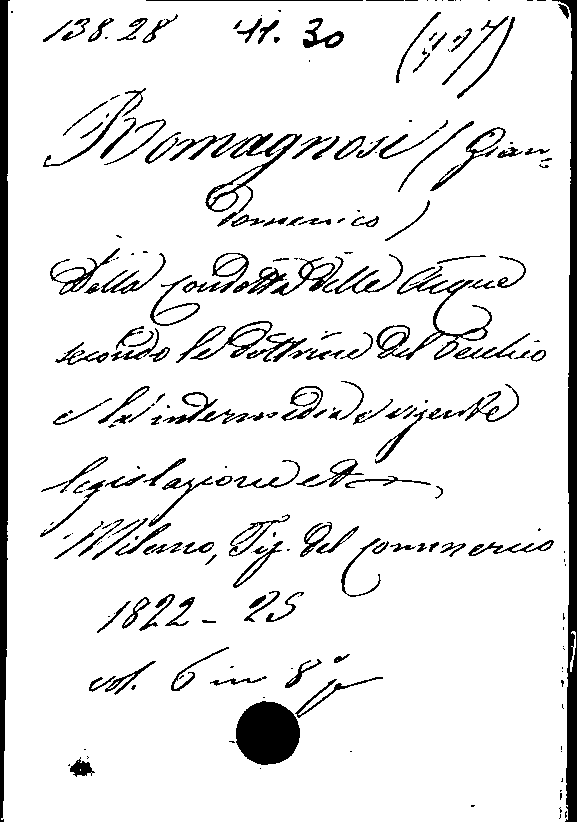 138.28 41.30 (727)
Romagnosi (Gian-
domenico)
Della condotta delle Acque
secondo le dottrine del Vecchio
e la intermedia e vigente
legislazione etc
Milano, Tip. del commercio
1822-25
vol. 6 in 8º